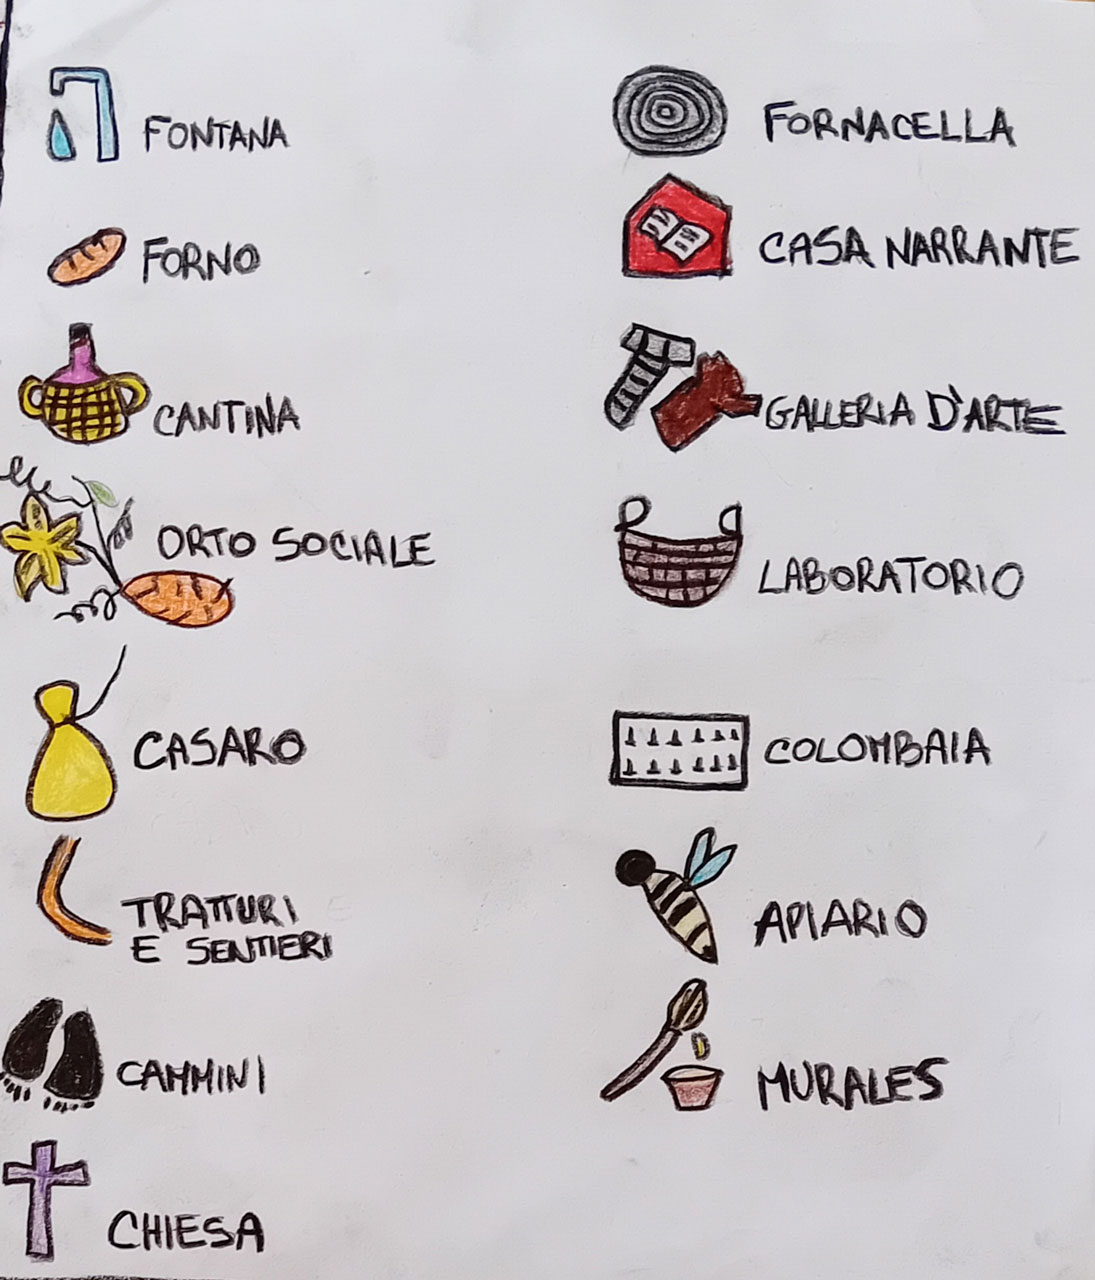 FONTANA
FORNO
CANTINA
ORTO SOCIALE
CASARO
TRATTURI
E SENTIERI
CAMMINI
CHIESA
FORNACELLA
CASA NARRANTE
GALLERIA D'ARTE
LABORATORIO
COLOMBAIA
APIARIO
MURALES